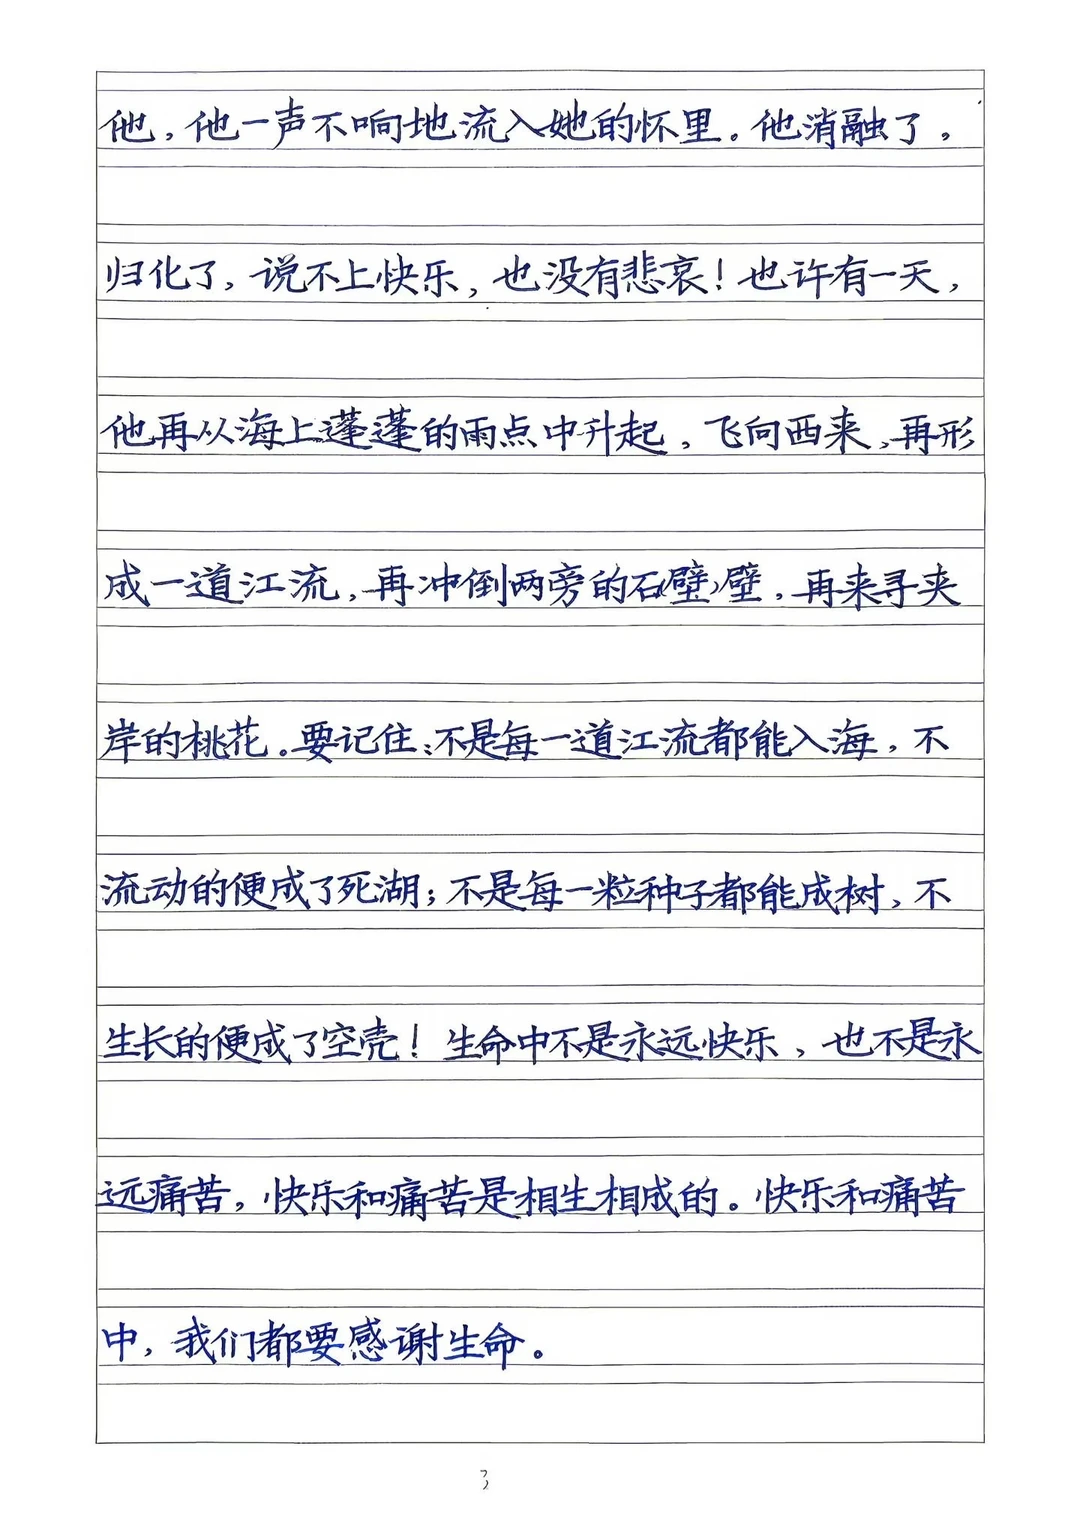 他，他一声不响地流入她的怀里。他消融了，
归化了，说不上快乐，也没有悲哀！也许有一天，
他再从海上蓬蓬的雨点中升起，飞向西来，再形
成一道江流，再冲倒两旁的石(壁)壁，再来寻夹
岸的桃花。要记住：不是每一道江流都能入海，不
流动的便成了死湖；不是每一粒种子都能成树，不
生长的便成了空壳！生命中不是永远快乐，也不是永
远痛苦，快乐和痛苦是相生相成的。快乐和痛苦
中，我们都要感谢生命。
3